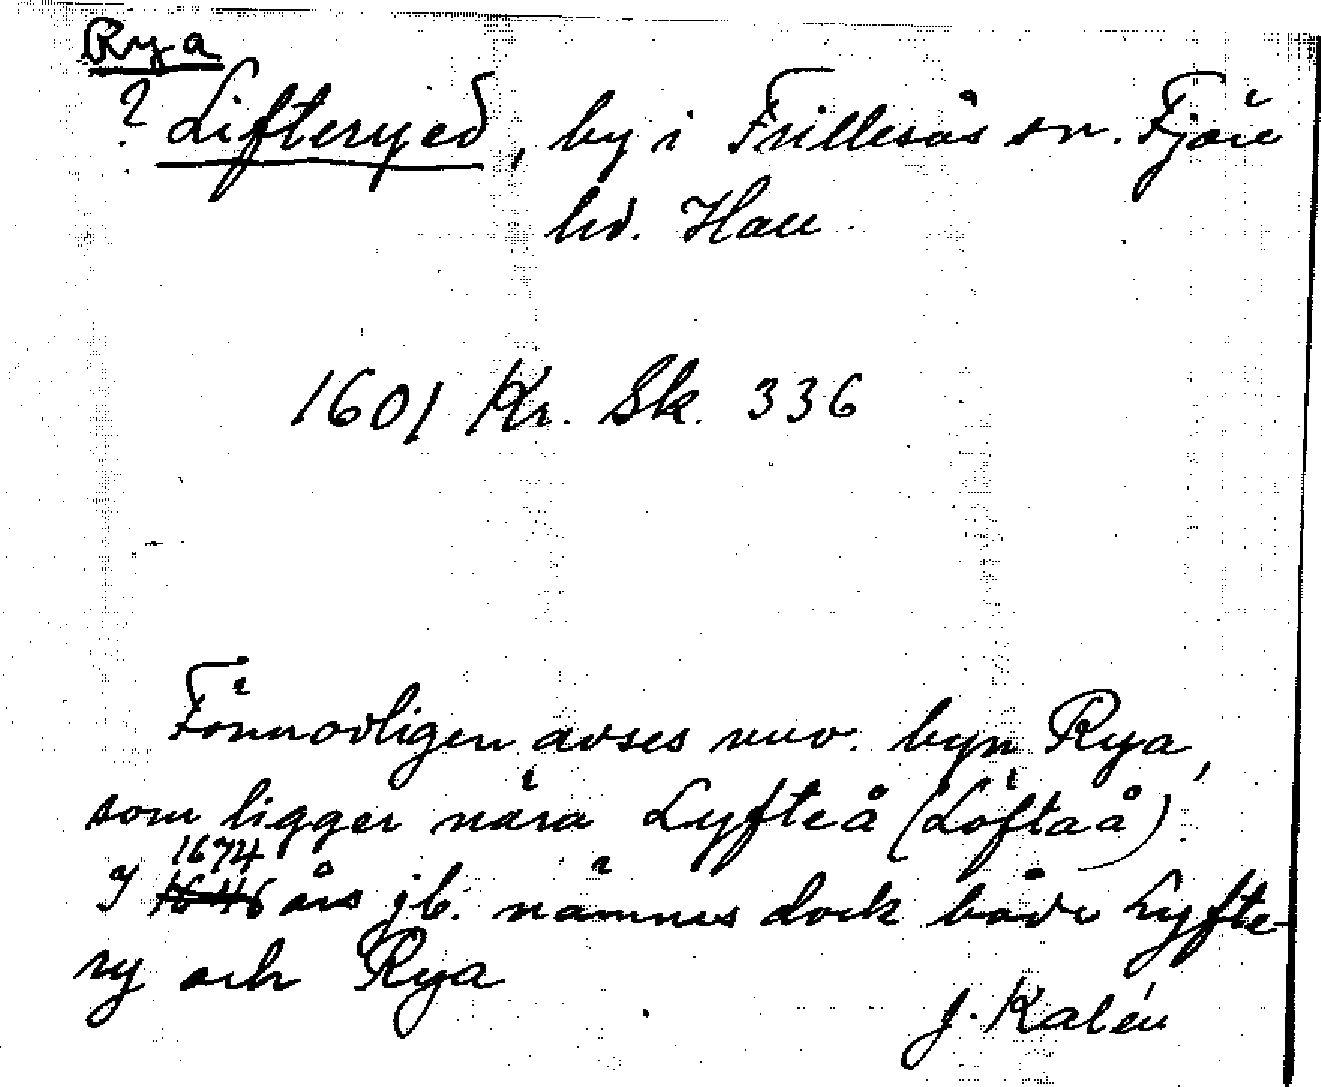 Rya
? Lifteryed, by i Frillesås sn. Fjäre
hd. Hall
1601 Kr. Sk. 336
Förmodligen avses nuv. byn Rya,
som ligger nära Lyfteå (Löftaå)
1674
I 1646 års jb. nämnes dock både Lyfte-
ry och Rya
J. Kalén